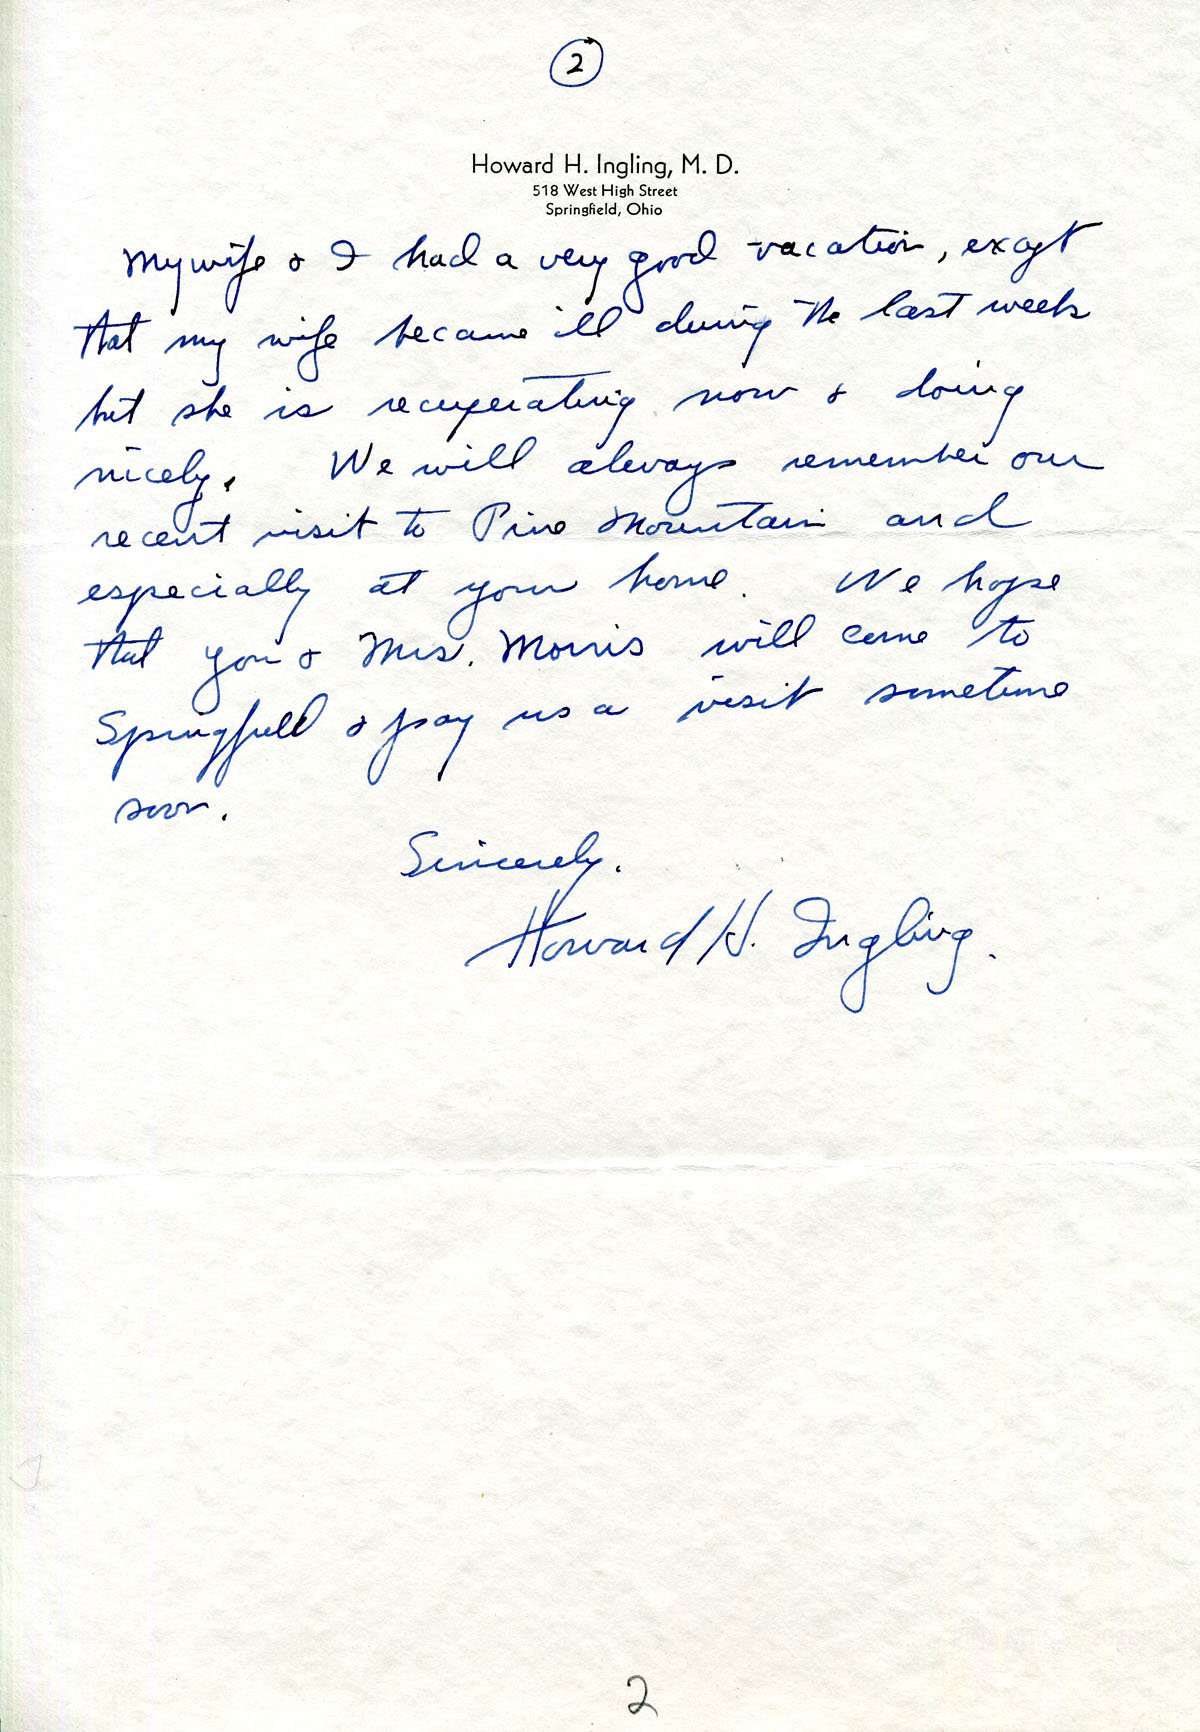 2
Howard H. Ingling, M. D.
518 West High Street
Springfield, Ohio
My wife & I had a very good vacation, except
that my wife became ill during the last week
but she is recuperating now & doing
nicely. We will always remember our
recent visit to Pine Mountain and
especially at your home. We hope
that you & Mrs. Morris will come to
Springfield & pay us a visit sometime
soon.
Sincerely.
Howard H. Ingling.
2